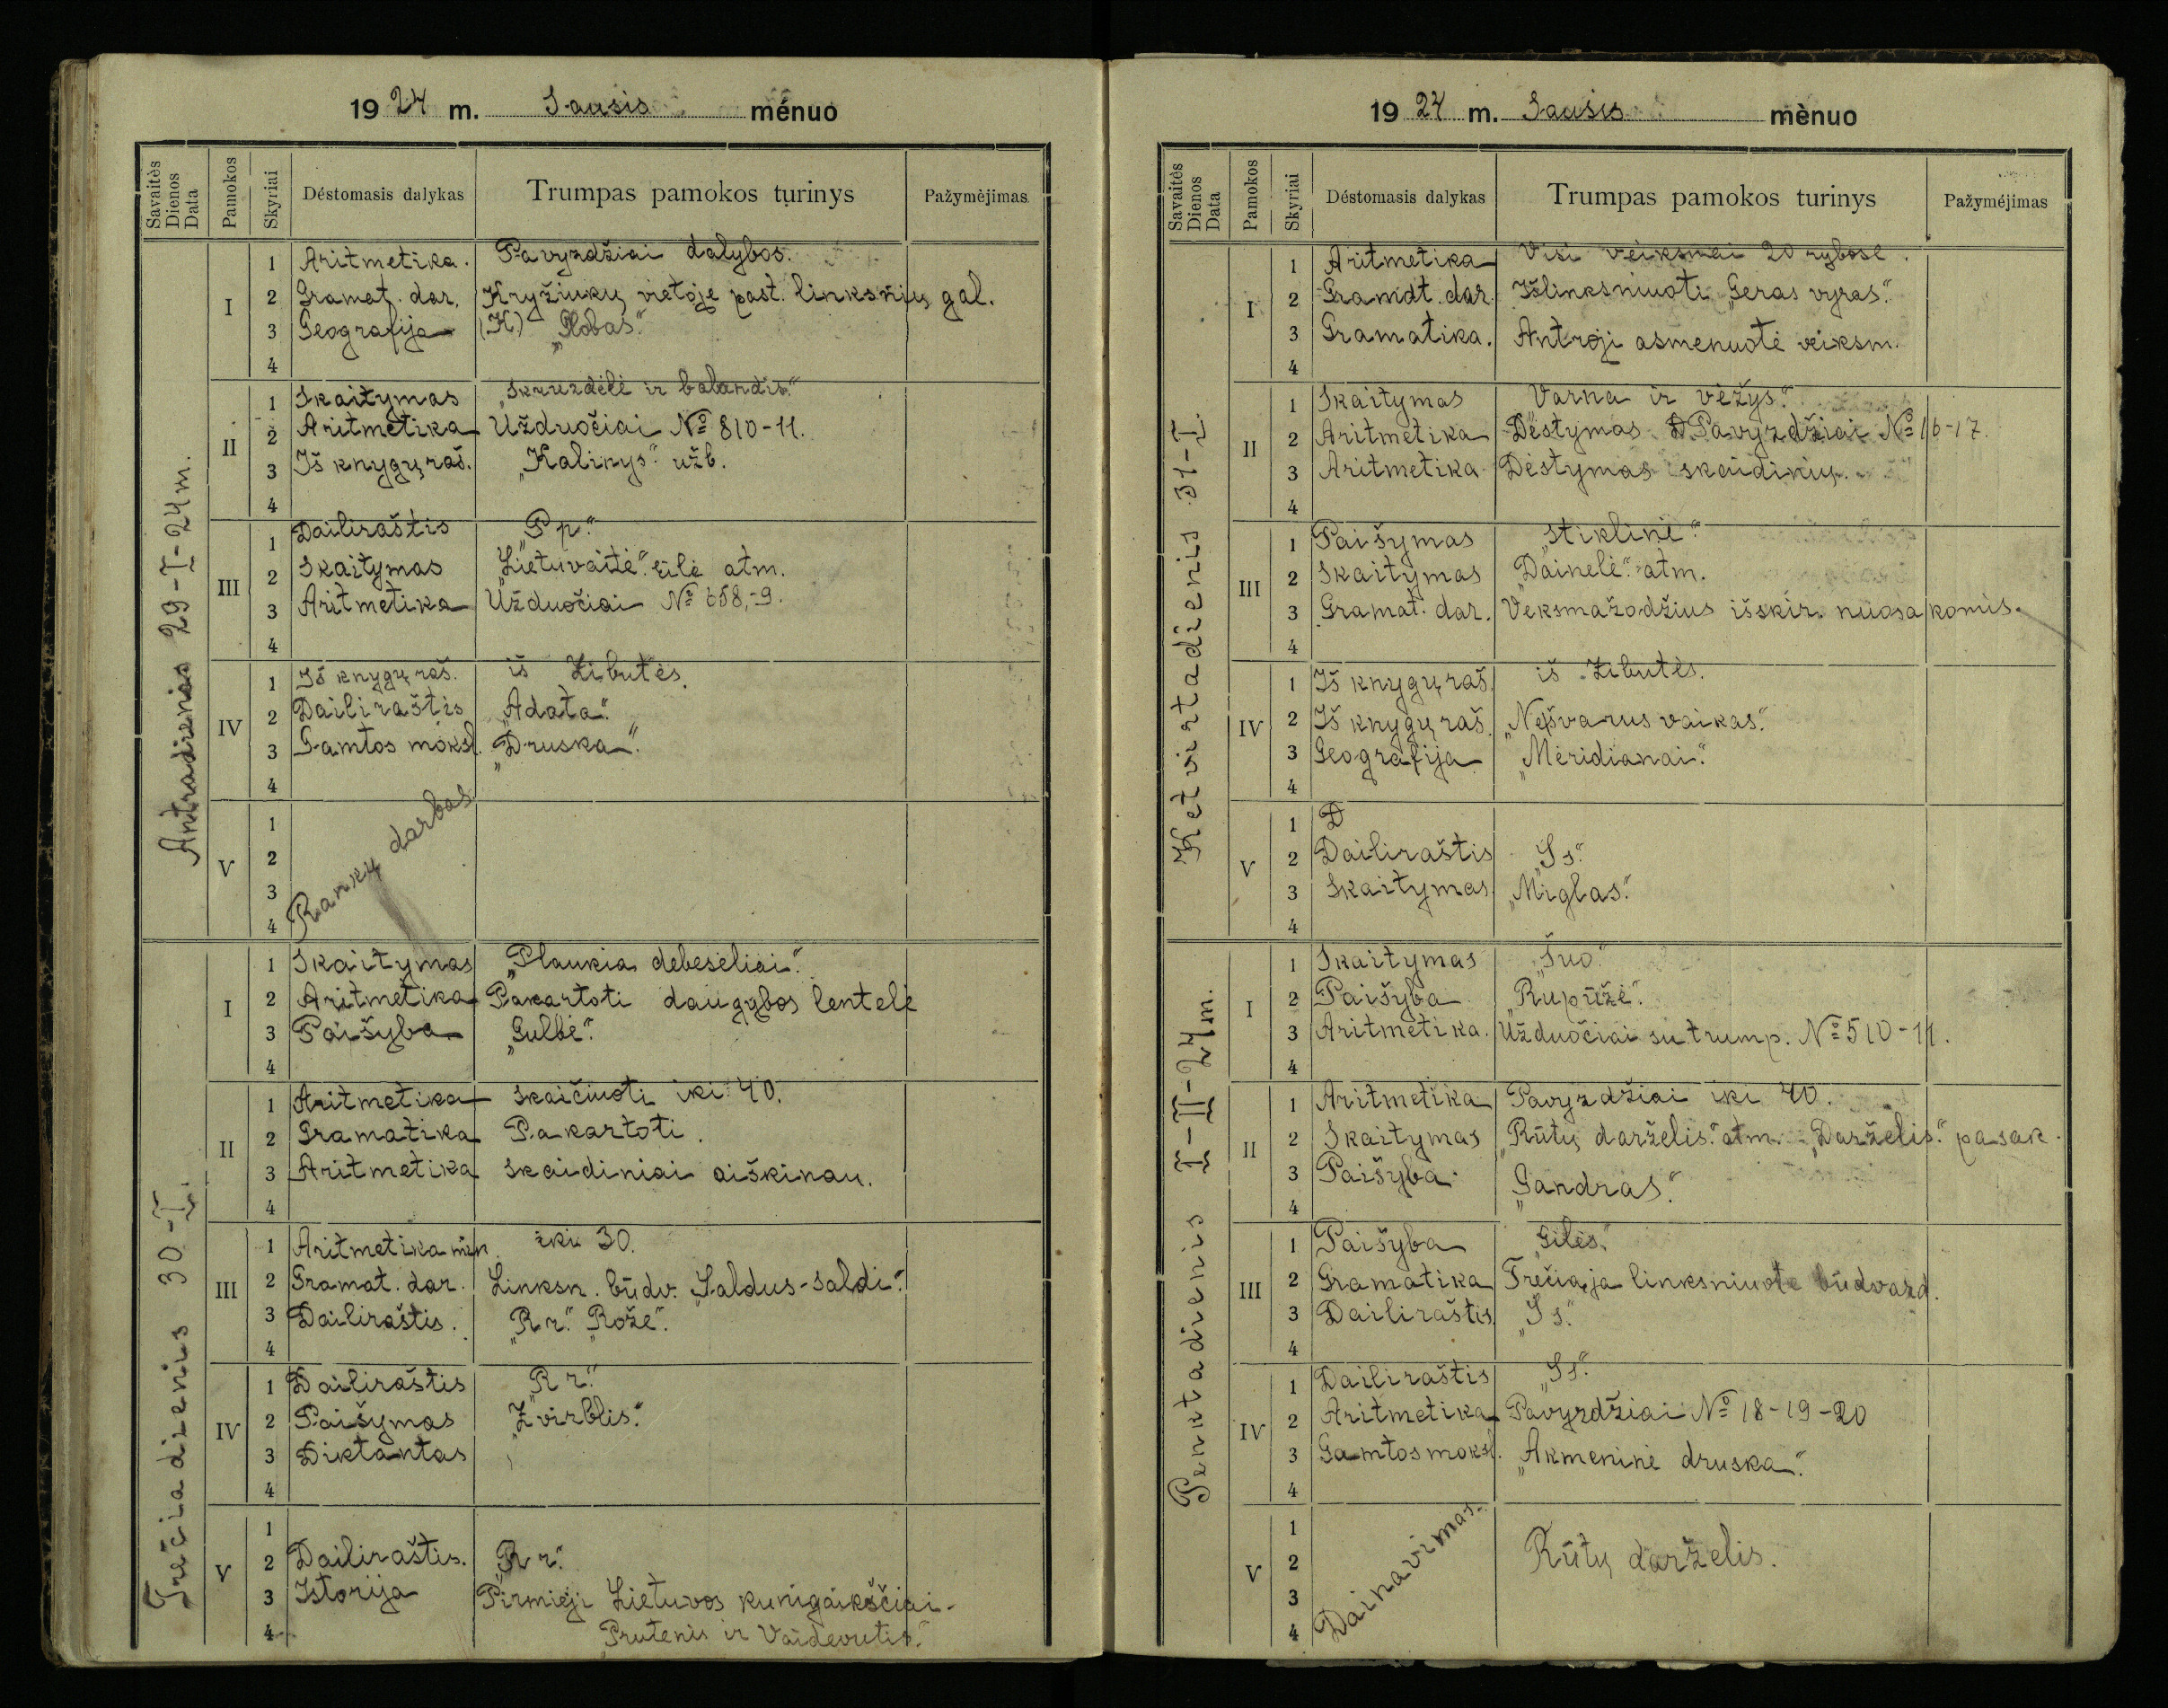 1924 m. Sausis ménuo
Savaitės Dienos Data Pamokos Skyriai Déstomasis dalykas Trumpas pamokos turinys Pažymėjimas
Antradienias 29-I-24 m.
I
1 Aritmetika. Pavyzdžiai dalybos.
2 Gramat. dar. Kryžiukų vietoje past. linksnių gal.
3 Geografija (K) „Globas“.
4
II
1 Skaitymas „Skruzdėlė ir balandis“.
2 Aritmetika Užduočiai № 810-11.
3 Iš knygų raš. „Kalinys“ užb.
4
III
1 Dailiraštis „P p“.
2 Skaitymas „Lietuvaitė“. eilė atm.
3 Aritmetika Užduočiai № 658,-9.
4
IV
1 Iš knygų raš. iš Žibutės.
2 Dailiraštis „Adata“.
3 Gamtos moksl. „Druska“.
4
V
1
2
3
4
Rankų darbas
Trečiadienis 30-I.
I
1 Skaitymas „Plaukia debesėliai“.
2 Aritmetika Pakartoti daugybos lentelė
3 Paišyba „Gulbė“.
4
II
1 Aritmetika skaičiuoti iki 40.
2 Gramatika Pakartoti.
3 Aritmetika skaidiniai aiškinau.
4
III
1 Aritmetika min. iki 30.
2 Gramat. dar. Linksn. būdv. „Saldus-saldi“.
3 Dailiraštis. „R r“. „Rožė“.
4
IV
1 Dailiraštis „R r“.
2 Paišymas „Žvirblis“.
3 Diktantas
4
V
1
2 Dailiraštis. „R r“.
3 Istorija Pirmieji Lietuvos kunigaikščiai-
4 Prutenis ir Vaidevutis“.
1924 m. Sausis mènuo
Savaitės Dienos Data Pamokos Skyriai Déstomasis dalykas Trumpas pamokos turinys Pažyméjimas
Ketvirtadienis 31-I.
I
1 Aritmetika Visi veiksmai 20 rybose.
2 Gramat. dar. Išlinksniuoti „Geras vyras“.
3 Gramatika. Antroji asmenuotė veiksm.
4
II
1 Skaitymas Varna ir vėžys“.
2 Aritmetika Dėstymas Pavyzdžiai № 16-17.
3 Aritmetika Dėstymas skaidinių.
4
III
1 Paišymas „stiklinė“.
2 Skaitymas „Dainelė“. atm.
3 Gramat. dar. Veksmažodžius išskir. nuosakomis.
4
IV
1 Iš knygų raš. iš Žibutės.
2 Iš knygų raš. „Nešvarus vaikas“.
3 Geografija „Meridianai“.
4
V
1 D
2 Dailiraštis „S s“.
3 Skaitymas „Miglas“.
4
Penktadienis I-II-24 m.
I
1 Skaitymas „Šuo“
2 Paišyba „Rupūžė“.
3 Aritmetika. Užduočiai su trump. № 510-11.
4
II
1 Aritmetika Pavyzdžiai iki 40.
2 Skaitymas „Rūtų darželis“. atm. „Darželis“. pasak.
3 Paišyba „Gandras“.
4
III
1 Paišyba „Gilės“.
2 Gramatika Trečiąja linksniuotė būdvard.
3 Dailiraštis „S s“.
4
IV
1 Dailiraštis „S s“.
2 Aritmetika Pavyzdžiai № 18-19-20
3 Gamtos moksl. „Akmeninė druska“.
4
V
1
2 Rūtų darželis.
3
4
Dainavimas.